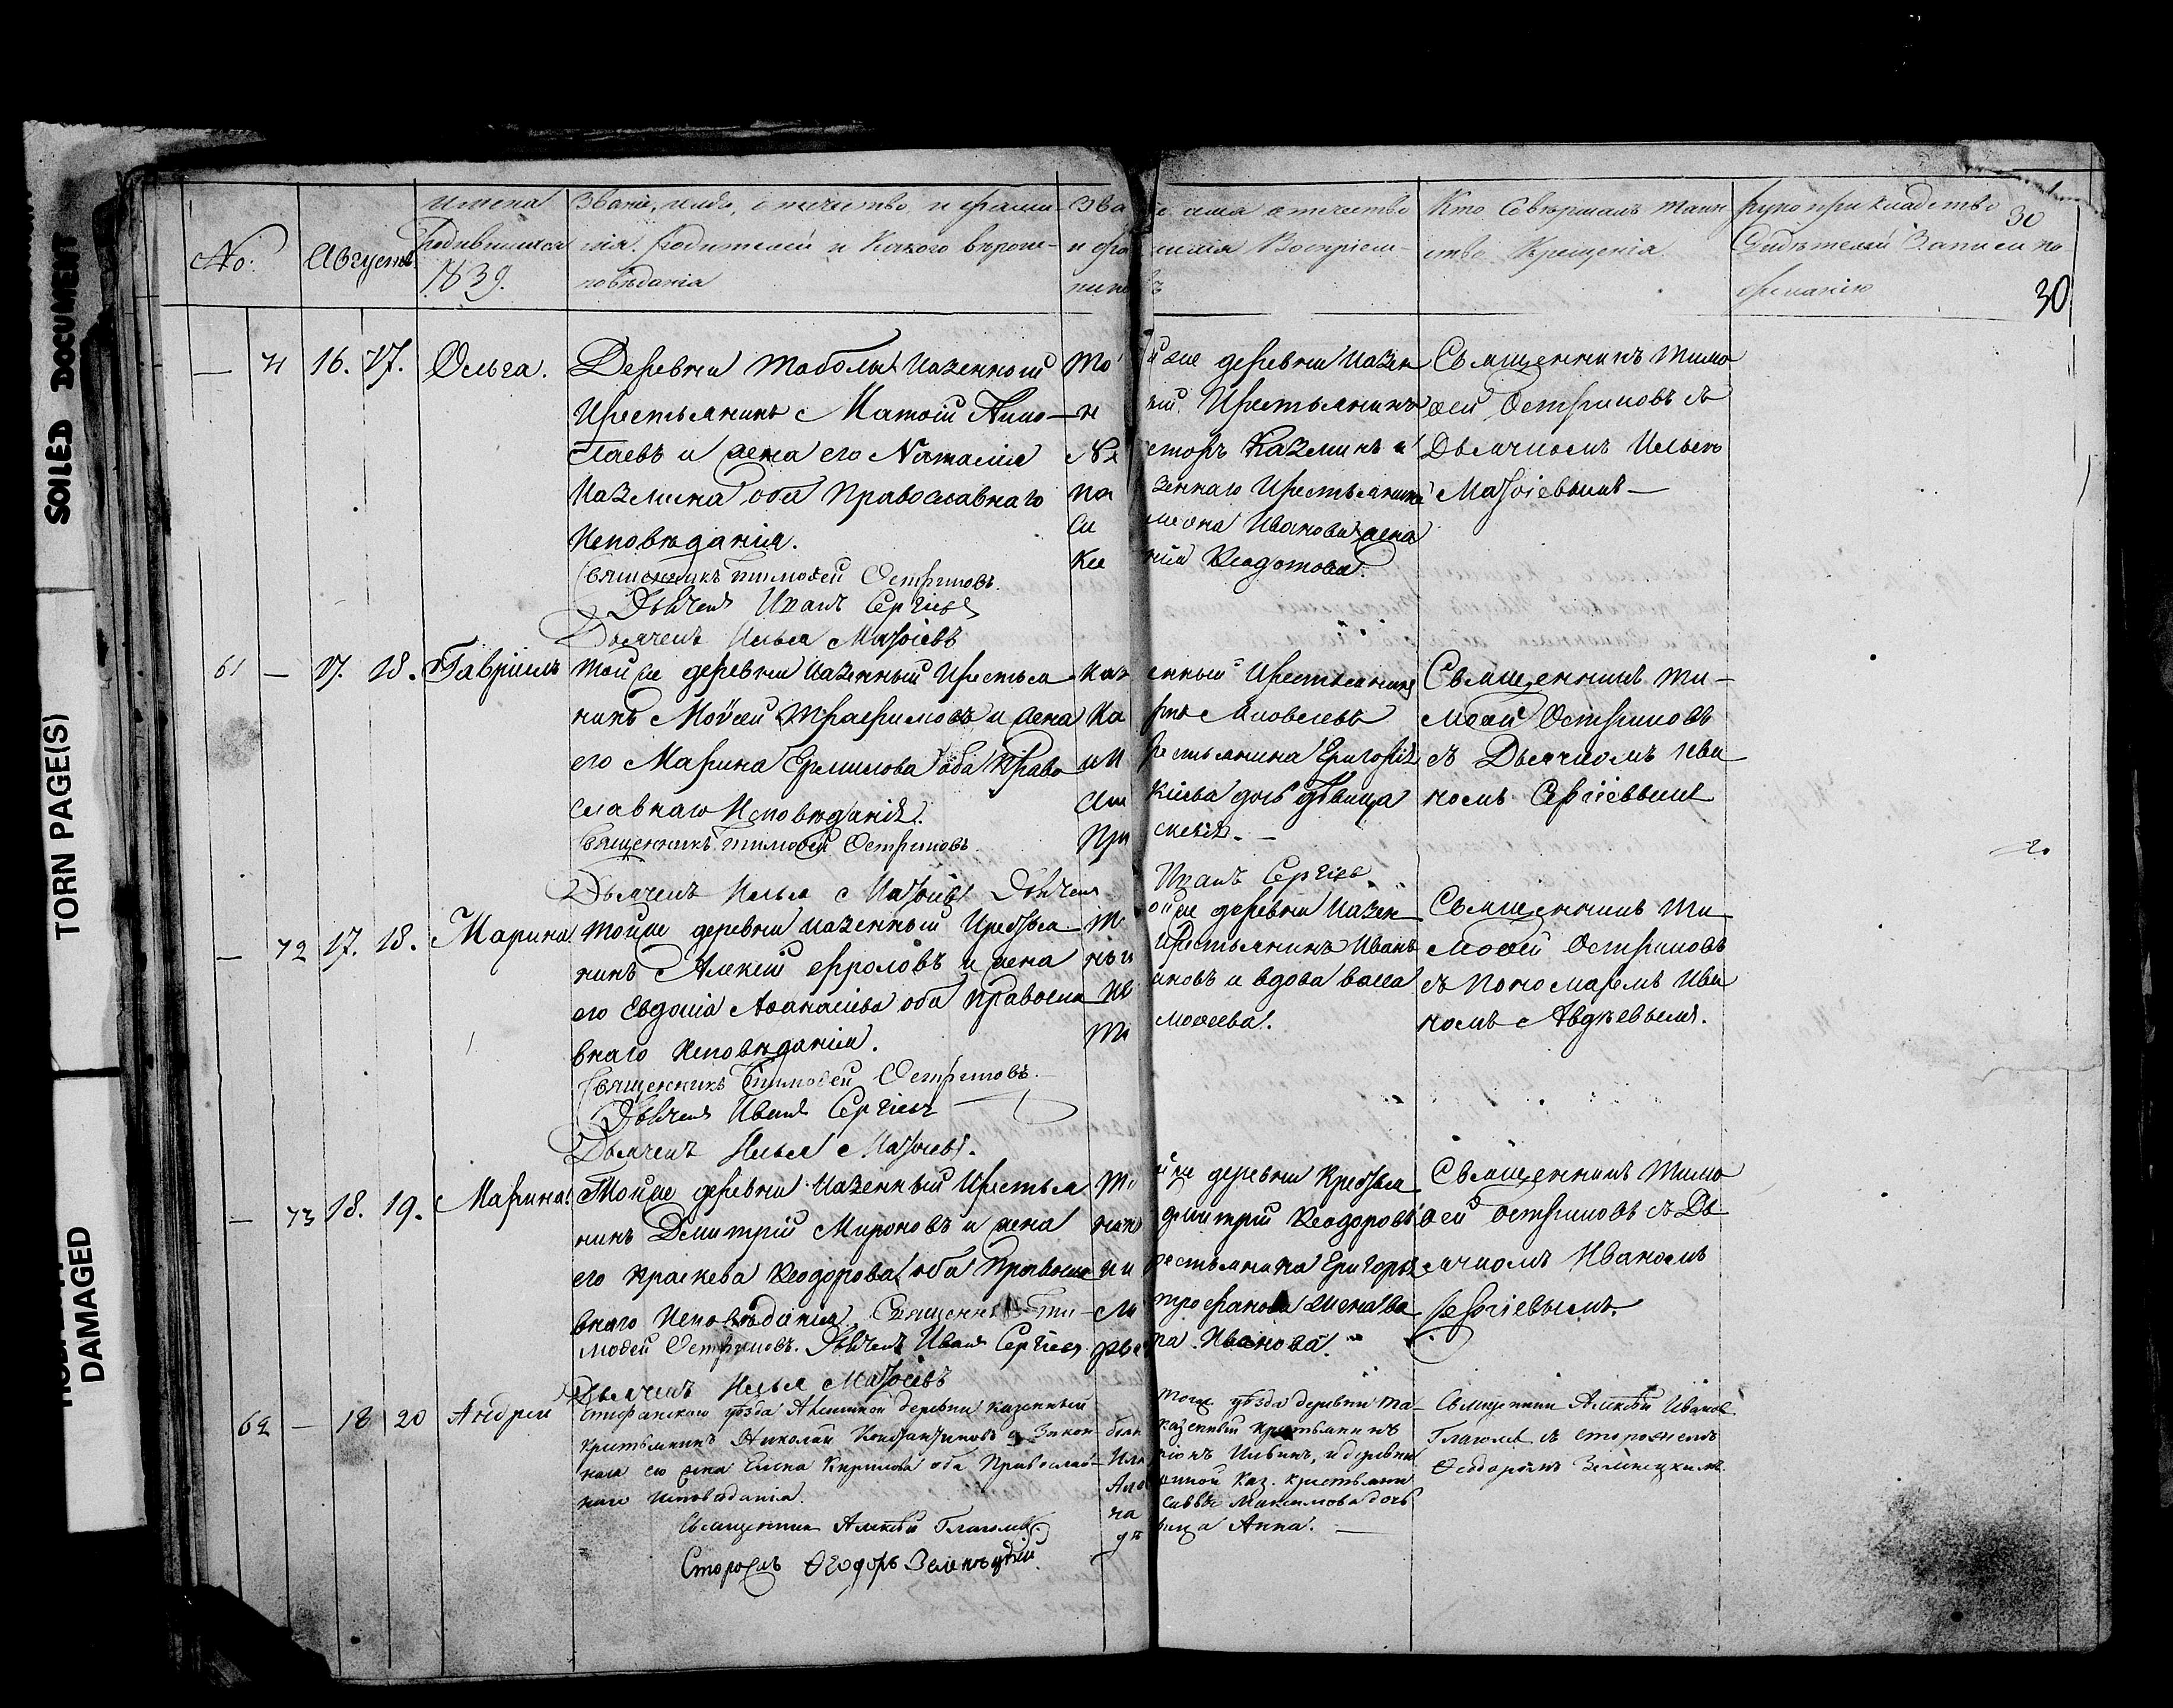 SOILED DOCUMENT
TORN PAGE(S)
DAMAGED
No: Августъ
имена родившихся 1839.
Званіе, имя, отечество и фами-
лія родителей и какого вѣроис-
повѣданія
Кто Совѣршалъ таин
ство Крещенія
Рукоприкладство
Свидѣтелей Записи по
желанію
30
30
— 71 16. 17. Ольга.
Деревни Таболы Казенный
Крестьянинъ
и жена его Наталія
Казмина оба Православнаго
Исповѣданія.
Священникъ Тимоѳей Остриковъ.
Дьячекъ Иванъ Сергіевъ
Дьячекъ Илья Матѳіевъ
Той же деревни Казен
ный Крестьянинъ
Несторъ Казминъ и
Казеннаго Крестьянина
Симеона Иванова жена
Ксенія Ѳеодотова.
Священникъ Тимо
ѳей Остриковъ съ
Дьячкомъ Ильею
Матѳіевымъ —
61 — 17. 18. Гавріилъ
Той же деревни Казенный Крестья
нинъ Моисей Трофимовъ и жена
его Марина Ермилова оба Право
славнаго Исповѣданія.
Священникъ Тимоѳей Остриковъ.
Дьячекъ Илья Матѳіевъ Дьячекъ Иванъ Сергіевъ
Казенный Крестьянинъ
Яковлевъ
и Крестьянина Григорія
дочь дѣвица
Священникъ Ти-
моѳей Остриковъ
съ Дьячкомъ Ива
номъ Сергіевымъ
— 72 17. 18. Марина
Той же деревни Казенный Кресть
нинъ Алексій Фроловъ и жена
его Евдокія Аѳанасіева оба Правосла
внаго Исповѣданія.
Священникъ Тимоѳей Остриковъ.
Дьячекъ Иванъ Сергіевъ
Дьячекъ Илья Матѳіевъ.
Той же деревни Казен
ный Крестьянинъ Иванъ
и вдова
Тимоѳеева.
Священникъ Ти
моѳей Остриковъ
съ Пономаремъ Ива
номъ Авдѣевымъ.
— 73 18. 19. Марина.
Той же деревни Казенный Крестья
нинъ Дмитрій Мироновъ и жена
его Праскева Ѳеодорова оба Правосла
внаго Исповѣданія. Священникъ Ти-
моѳей Остриковъ. Дьячекъ Иванъ Сергіевъ
Дьячекъ Илья Матѳіевъ
Той же деревни Крестья
нинъ Дмитрій Ѳеодоровъ
и Крестьянина Григорія
Митрофанова жена
Иванова.
Священникъ Тимо
ѳей Остриковъ съ Дь
ячкомъ Иваномъ
Сергіевымъ.
62 — 18 20 Андрей
Епифанскаго уѣзда деревни казенный
крестьянинъ Николай Константиновъ и Закон-
ная его жена Елена Кирилова оба Православ-
наго Исповѣданія.
Священникъ Алексѣй Глаголевъ.
Сторожъ Ѳеодоръ Зеленецкій.
Того же уѣзда деревни Та-
болъ казенный крестьянинъ
Ильинъ, и деревни
каз. крестьяни
на Саввы Максимова дочь
дѣвица Анна. —
Священник Алексѣй Иванов
Глаголев съ сторожемъ
Ѳеодоромъ Зеленецкимъ